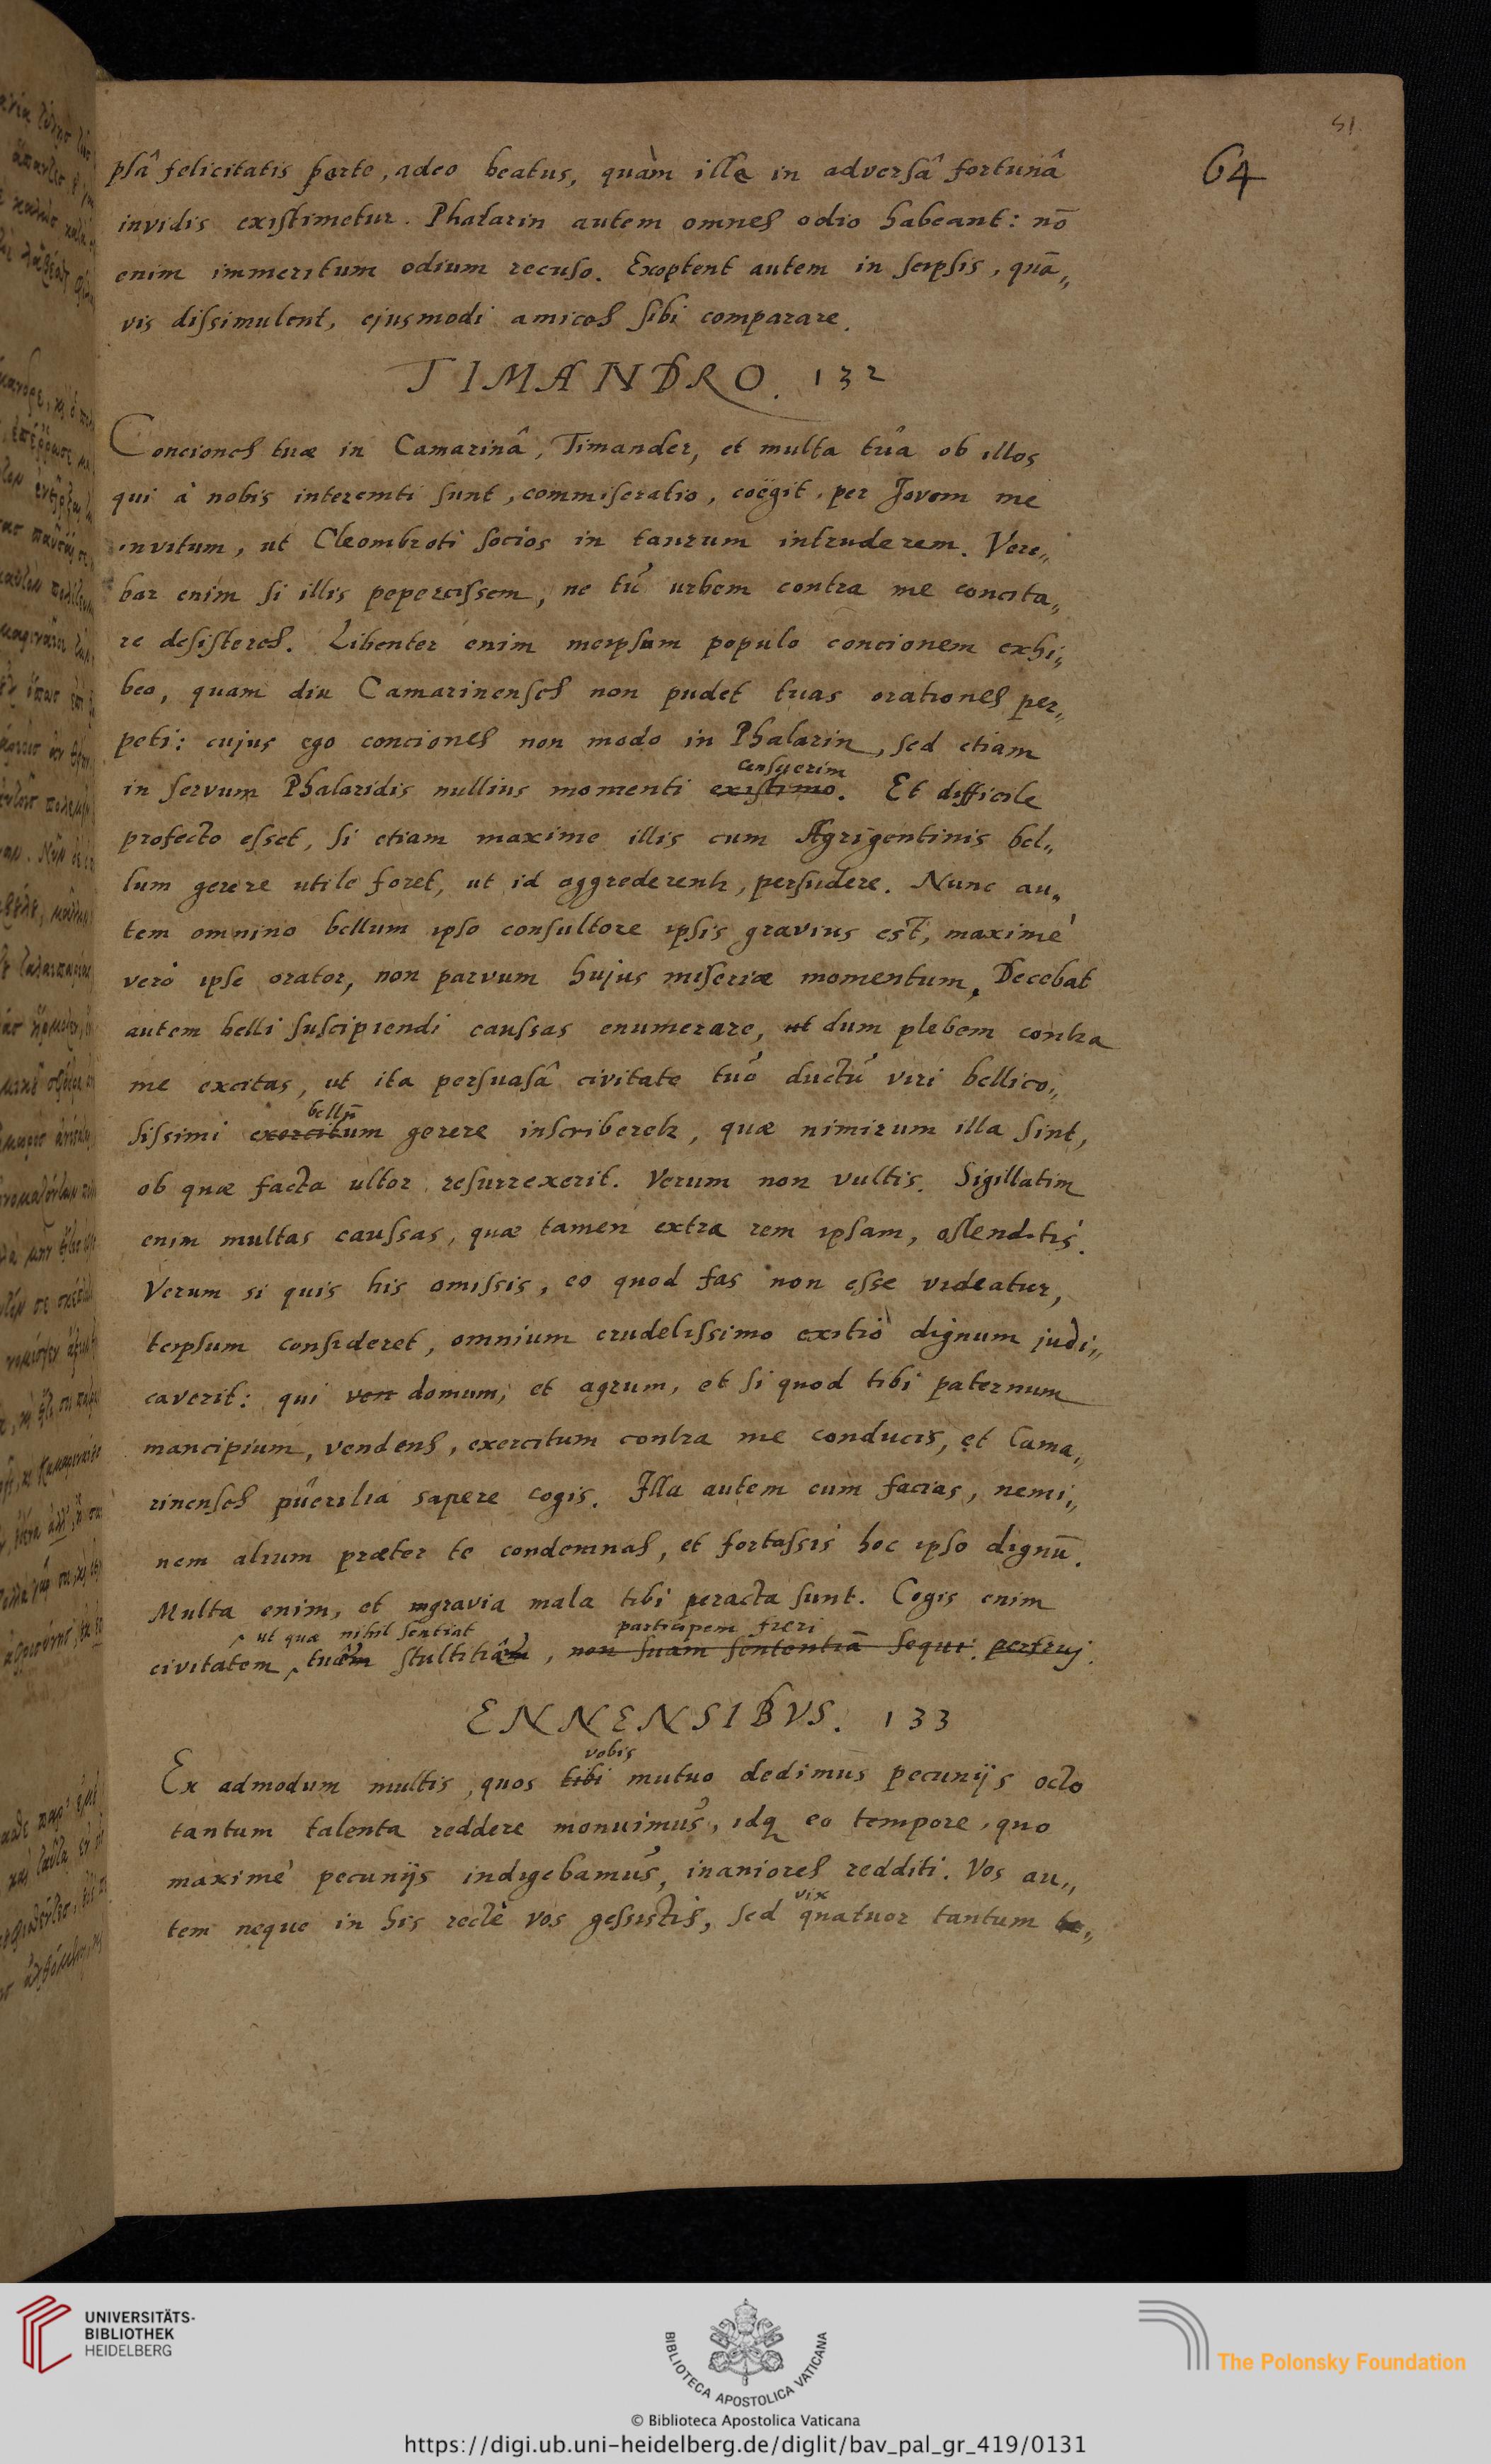 51
64
psâ felicitatis sorte, adeo beatus, quàm illa in adversâ fortunâ
invidis existimetur. Phalarin autem omnes odio habeant: nō
enim immeritum odium recuso. Exoptent autem in seipsis, quā„
vis dissimulent, ejusmodi amicos sibi comparare.
TIMANDRO. 132
Conciones tuæ in Camarinâ, Timander, et multa tua ob illos
qui à nobis interemti sunt, commiseratio, coëgit, per Jovem me
invitum, ut Cleombroti socios in taurum intruderem. Vere„
bar enim si illis pepercissem, ne tu urbem contra me concita„
re desisteres. Libenter enim meipsum populo concionem exhi„
beo, quam diu Camarinenses non pudet tuas orationes per„
peti: cujus ego conciones non modo in Phalarin, sed etiam
censuerim
in servum Phalaridis nullius momenti existimo. Et difficile
profecto esset, si etiam maxime illis cum Agrigentinis bel„
lum gerere utile foret, ut id aggrederentr, persudere. Nunc au„
tem omnino bellum ipso consultore ipsis gravius est, maximè
verò ipse orator, non parvum hujus miseriæ momentum. Decebat
autem belli suscipiendi caussas enumerare, ut dum plebem contra
me excitas, ut ita persuasâ civitate tuo ductu viri bellico„
bellū
sissimi exercitum gerere inscriberetr, quæ nimirum illa sint,
ob quæ facta ultor resurrexerit. Verum non vultis. Sigillatim
enim multas caussas, quæ tamen extra rem ipsam, ostenditis.
Verum si quis his omissis, eo quod fas non esse videatur,
teipsum consideret, omnium crudelissimo exitio dignum judi„
caverit: qui ven domum, et agrum, et si quod tibi paternum
mancipium, vendens, exercitum contra me conducis, et Cama„
rinenses puerilia sapere cogis. Illa autem cum facias, nemi„
nem alium præter te condemnas, et fortassis hoc ipso dignū.
Multa enim, et gravia mala tibi peracta sunt. Cogis enim
ut quæ nihil sentiat participem fieri
civitatem, tuâm stultitiâm, non suam sententiā sequi. perfrui.
ENNENSIBVS. 133
vobis
Ex admodum multis, quos tibi mutuo dedimus pecunijs octo
tantum talenta reddere monuimus, idq eo tempore, quo
maximè pecunijs indigebamus, inaniores redditi. Vos au„
vix
tem neque in his rectè vos gessistis, sed quatuor tantum te„
UNIVERSITÄTS-
BIBLIOTHEK
HEIDELBERG
BIBLIOTECA APOSTOLICA VATICANA
The Polonsky Foundation
© Biblioteca Apostolica Vaticana
https://digi.ub.uni-heidelberg.de/diglit/bav_pal_gr_419/0131